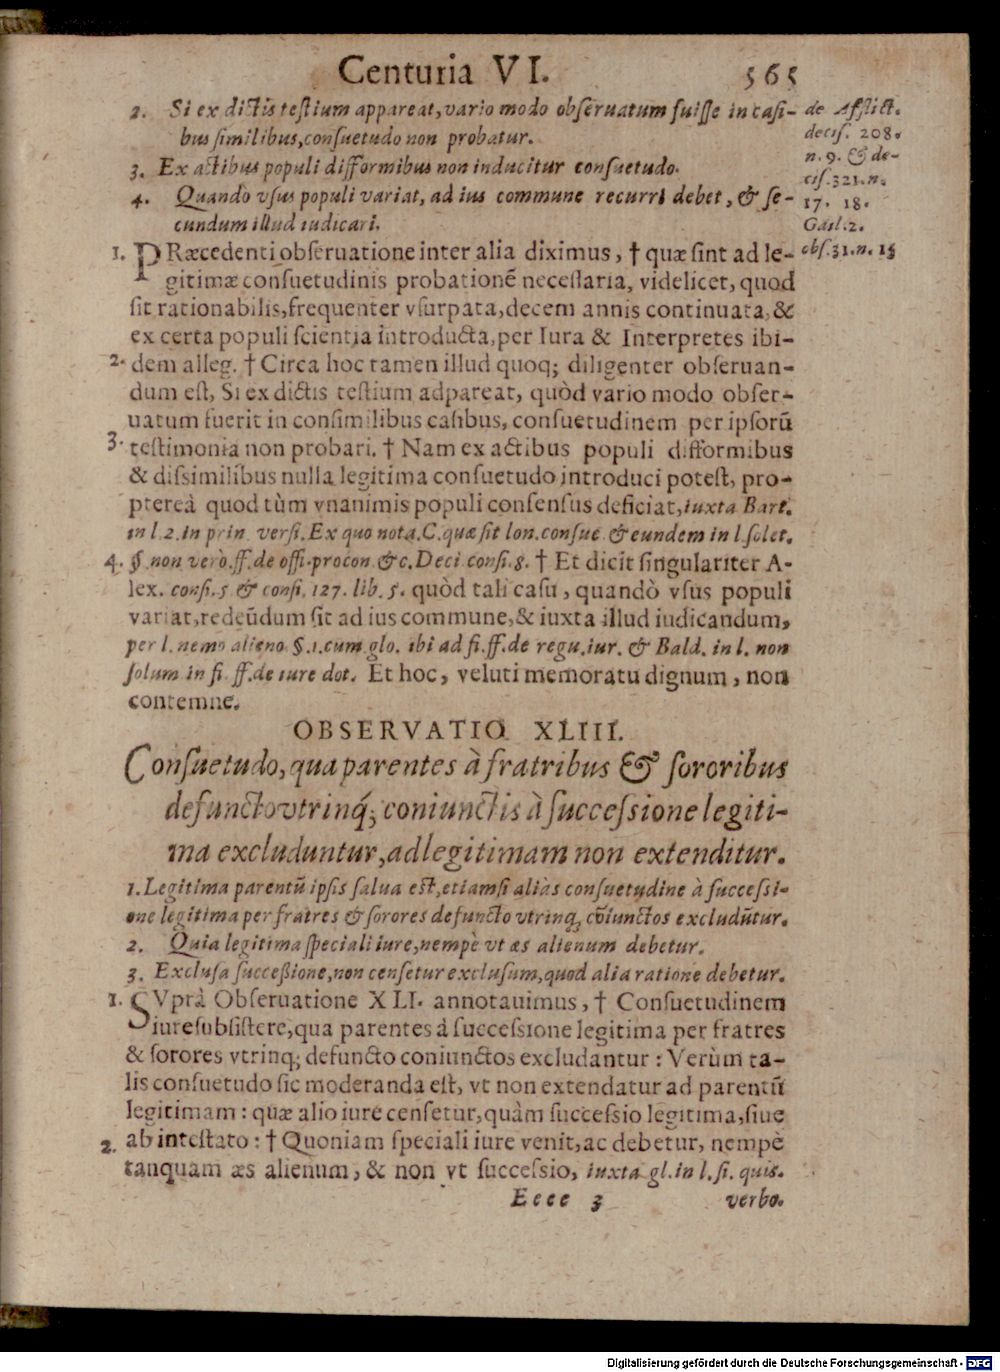 Centuria VI. 565
2. Si ex dictis testium appareat, vario modo obseruatum fuisse in casi-
bus similibus, consuetudo non probatur.
3. Ex actibus populi difformibus non inducitur consuetudo.
4. Quandò vsus populi variat, ad ius commune recurri debet, & se-
cundum illud iudicari.
de Afflict.
decis. 208.
n. 9. & de-
cis. 321. n.
17. 18.
Gail. 2.
obs. 31. n. 15
1. PRæcedenti obseruatione inter alia diximus, † quæ sint ad le-
gitimæ consuetudinis probationē necessaria, videlicet, quod
sit rationabilis, frequenter vsurpata, decem annis continuata, &
ex certa populi scientia introducta, per Iura & Interpretes ibi-
2. dem alleg. † Circa hoc tamen illud quoq; diligenter obseruan-
dum est, Si ex dictis testium adpareat, quòd vario modo obser-
uatum fuerit in consimilibus casibus, consuetudinem per ipsorū
3. testimonia non probari. † Nam ex actibus populi difformibus
& dissimilibus nulla legitima consuetudo introduci potest, pro-
ptereà quod tùm vnanimis populi consensus deficiat, iuxta Bart.
in l. 2. in prin. versi. Ex quo nota. C. quæ sit lon. consue. & eundem in l. solet.
4. §. non verò. ff. de offi. procon. &c. Deci consi. 8. † Et dicit singulariter A-
lex. consi. 5 & consi. 127. lib. 5. quòd tali casu, quandò vsus populi
variat, redeūdum sit ad ius commune, & iuxta illud iudicandum,
per l. nemo alieno. §. 1. cum glo. ibi ad fi. ff. de regu. iur. & Bald. in l. non
solum in fi. ff. de iure dot. Et hoc, veluti memoratu dignum, non
contemne.
OBSERVATIO XLIII.
Consuetudo, qua parentes à fratribus & sororibus
defuncto vtrinq́; coniunctis à successione legiti-
ma excluduntur, ad legitimam non extenditur.
1. Legitima parentū ipsis salua est, etiamsi aliàs consuetudine à successi-
one legitima per fratres & sorores defuncto vtrinq; cōiunctos excludūtur.
2. Quia legitima speciali iure, nempè vt æs alienum debetur.
3. Exclusa successione, non censetur exclusum, quod alia ratione debetur.
1. SVprà Obseruatione XLI. annotauimus, † Consuetudinem
iure subsistere, qua parentes à successione legitima per fratres
& sorores vtrinq; defuncto coniunctos excludantur: Verùm ta-
lis consuetudo sic moderanda est, vt non extendatur ad parentū
legitimam: quæ alio iure censetur, quàm successio legitima, siue
2. ab intestato: † Quoniam speciali iure venit, ac debetur, nempè
tanquam æs alienum, & non vt successio, iuxta gl. in l. si. quis.
Eeee 3 verbo.
Digitalisierung gefördert durch die Deutsche Forschungsgemeinschaft - DFG